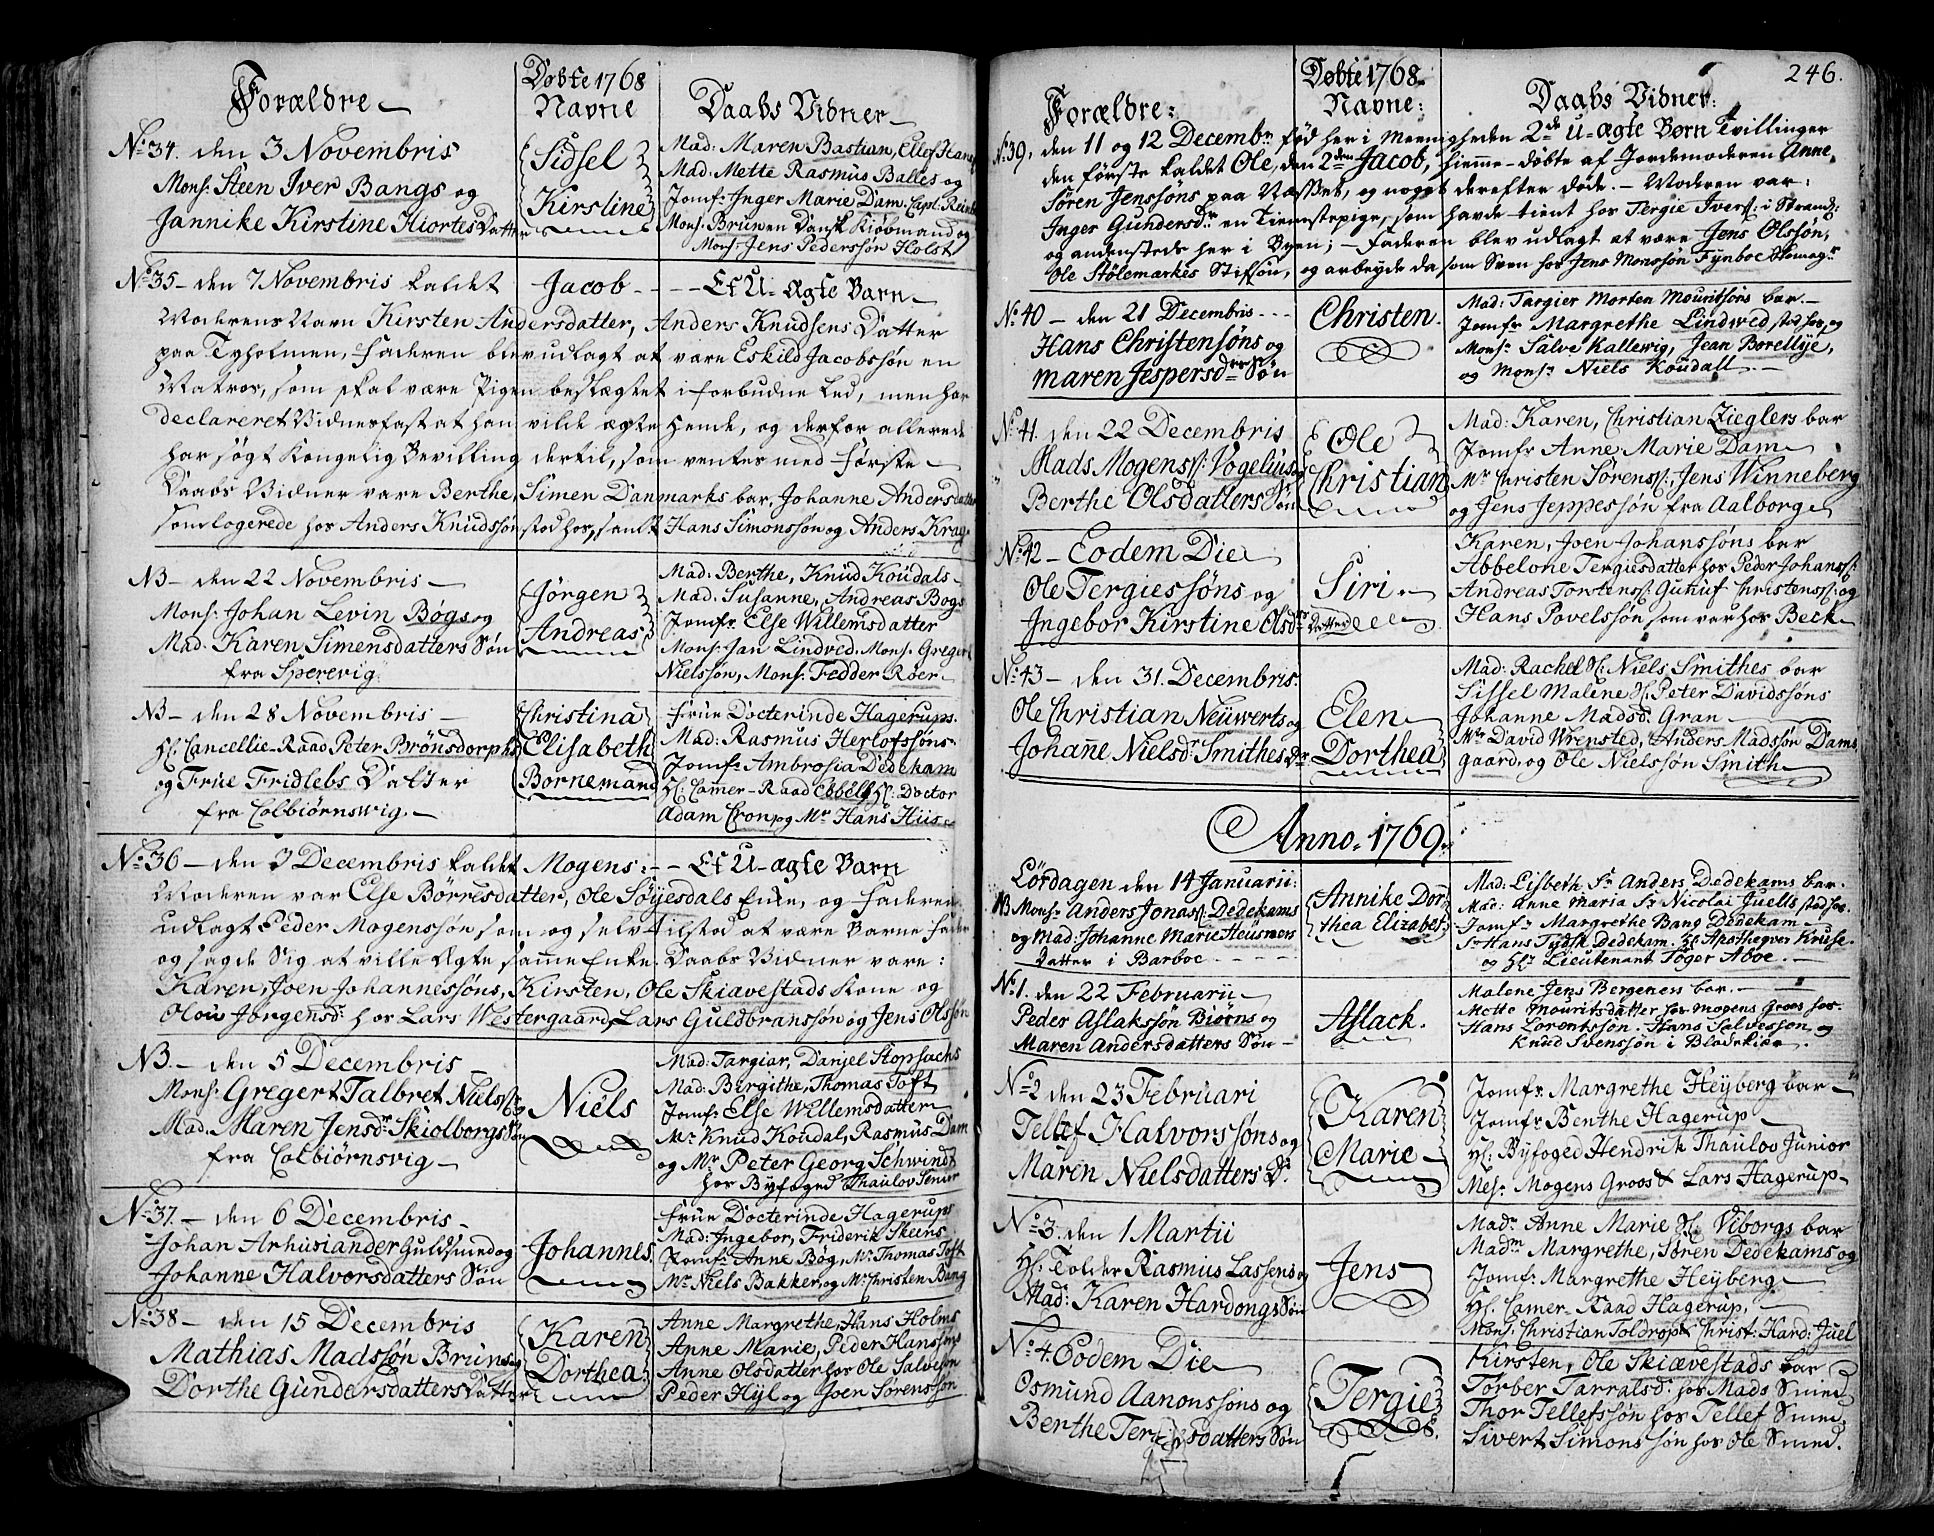 Forældre
Døbte 1768
Navne
Daabs Vidner
No. 34. den 3 Novembris
Mons: Steen Iver Bangs og
Jannike Kirstine Hiortes Datter
Sidsel
Kirstine
Mad: Maren Bastian, Ellef Hans
Mad: Mette Rasmus Balles og
Jomfr: Inger Marie Dam. Capt: Reinh
Mons: Brun en Dansk Kiøbmand og
Mons: Jens Pederssøn Holst
No. 35 – den 7 Novembris kaldet Jacob – – Et U-ægte Barn
Moderens Navn Kirsten Andersdatter, Anders Knudsens Datter
paa Tyholmen, Faderen blev udlagt at være Eskild Jacobssøn en
Matros, som skal være Pigen beslægtet i forbudne Led, men har
declareret Vidnerfast at han vilde ægte Hende, og derfor allerede
har søgt Kongelig Bevilling dertil, som ventes med første
Daabs Vidner vare Berthe, Simen Danmarks bar, Johanne Andersdatter
som logerede hos Anders Knudssøn stod hos, samt Hans Simonssøn og Anders Krag
NB – den 22 Novembris –
Mons: Johan Levin Bøgs og
Mad. Karen Simensdatters Søn
fra Sperevig
Jørgen
Andreas
Mad: Berthe, Knud Koudals
Mad: Susanne, Andreas Bøgs
Jomfr: Else Willemsdatter
Mons: Jan Lindved. Mons: Gregert
Nielssøn, Mons: Fedder Røer
NB – den 28 Novembris –
Hl: Cancellie-Raad Peter Brønsdorphs
og Frue Fridlebs Datter
fra Colbiørnswig. –
Christina
Elisabeth
Bornemand
Frue Docterinde Hagerups.
Mad: Rasmus Herlofssøns
Jomfr: Ambrosia Dedekam
Hl: Camer-Raad Ebbel, Hl: Doctor
Adam Cron og Mr Hans Huus
No. 36 – den 3 Decembris kaldet Mogens: – – Et U-ægte Barn
Moderen var Else Børresdatter, Ole Søyesdals Enke, og Faderen
udlagt Peder Mogenssøn som og selv tilstod at være Barne Fader
og sagde Sig at ville Ægte samme Enke. Daabs Vidner vare:
Karen, Joen Johannessøns, Kirsten, Ole Skiævestads Kone og
Olou Jørgensd: hos Lars Westergaard, Lars Guldbranssøn og Jens Olssøn
NB. – den 5 Decembris
Mons: Gregert Talbret Nielss: og
Mad. Maren Jensdr Skiolborgs Søn
fra Colbiørnsvig –
Niels
Mad: Targiar, Daniel Stopsachs
Mad: Bergithe, Thomas Toft
Jomfr: Else Willemsdatter
Mr Knud Koudal, Rasmus Dam
og Mr Peter Georg Schwindt
hos Byfoged Thaulov Senior
No. 37. – den 6 Decembris –
Johan Arhusiander Guldsmed og
Johanne Halvorsdatters Søn
Johannes
Frue Docterinde Hagerups
Mad: Ingebor, Friderik Skeens
Jomfr: Anne Bøg, Mr Thomas Toft
Mr Niels Bakker, og Mr Christen Bang
No. 38 – den 15 Decembris
Mathias Madssøn Bruns og
Dorthe Gundersdatters Datter
Karen
Dorthea
Anne Margrethe, Hans Holms
Anne Marie, Peder Hanssøns
Anne Olsdatter hos Ole Salveson
Peder Hyl og Joen Sørenssøn
246.
Forældre:
Døbte 1768
Navne:
Daabs Vidner:
No. 39, den 11 og 12 Decembr fød her i Menigheden 2de U-ægte Børn Tvillinger
den første kaldet Ole, den 2den Jacob, hiemme-døbte af Jordemoderen Anne,
Søren Jenssøns paa Næsset, og noget derefter døde. – Moderen var:
Inger Gundersdr en Tienestepige, som havde tient hos Tergie Iverss: i Strand:
og andenstede her i Byen; – Faderen blev udlagt at være Jens Olssøn,
Ole Stølemarkes Stifsøn, og arbeyde da som Sven hos Jens Monssøn Fynboe Skomagr
No. 40 – den 21 Decembris – –
Hans Christensøns og
Maren Jespersdrs Søn
Christen.
Mad: Targier Morten Mouritsøns bar. –
Jomfr Margrethe Lindwed stod hos, og
Monsr Salve Kallewig, Jean Borellye,
og Monsr Niels Koudall. –
No. 41. den 22 Decembris
Mads Mogenss: Vogelius og
Berthe Olsdatters Søn
Ole
Christian
Mad: Karen, Christian Zieglers bar
Jomfr Anne Marie Dam
Mr Christen Sørenss:, Jens Winneberg
og Jens Jeppessøn fra Aalborg
No. 42 – Eodem Die
Ole Tergiessøns og
Ingebor Kirstine Olsdrs Datter
Siri.
Karen, Joen Johanssøns bar
Abbelone Tergiesdatter hos Peder Johanss:
Andreas Torstenss: Gutuf Christenss: og
Hans Povelssøn som var hos Beck
No. 43 – den 31. Decembris.
Ole Christian Neuwerts og
Johanne Nielsdr Smithes Dr
Elen
Dorthea
Mad: Rachel Sl: Niels Smithes bar
Sissel Malene Sl: Peter Davidssøns
Johanne Madsd: Gran
Mr David Wrensted, Anders Madssøn Dams
gaard, og Ole Nielssøn Smith
Anno. 1769.
Lördagen den 14 Januarii:
NB Monsr Anders Jonass: Dedekams
og Mad: Johanne Marie Heusmers
Datter i Barboe
Annike Dor
thea Elizabet:
Mad: Lisbeth Sr Anders Dedekams bar.
Mad: Anne Maria Sr Nicolai Juells stod hos.
Jomfr Margrethe Bang Dedekam –
Sr Hans Tydsk Dedekam. Hl Apotheqver Kruse.
og Hl: Lieutenant Töger Aboe. –
No. 1. den 22 Februarii –
Peder Aslakssøn Biørns og
Maren Andersdatters Søn –
Aslack.
Malene Jens Bergeners bar. –
Mette Mouritsdatter hos Mogens Groos hos.
Hans Lorentssøn. Hans Salvessen, og
Knud Svenssøn i Blødekiær.
No. 2 den 23 Februari
Tellef Halvorssøns og
Maren Nielsdatters Dr
Karen
Marie
Jomfr: Margrethe Heyberg bar
Jomfr: Benthe Hagerup
Hl: Byfoged Hendrik Thaulov Junior
Mesr: Mogens Groos & Lars Hagerup
No. 3. den 1 Martii
Hl: Tolder Rasmus Lassens og
Mad: Karen Hardongs Søn
Jens
Madm Anne Marie Hl Viborgs bar
Madm Margrethe, Søren Dedekams og
Jomfr: Margrethe Heyberg
Hl: Camer-Raad Hagerup, –
Mons: Christian Toldrop & Christ: Hard: Juel
No. 4. Eodem Die
Osmund Aanonssøns og
Berthe Tergesdatters Søn
Tergie
Kirsten, Ole Skiævestads bar
Torber Tarralsd: hos Mads Smed
Thor Tellefssøn hos Tellef Smed
Sivert Simonssøn hos Ole Smed.